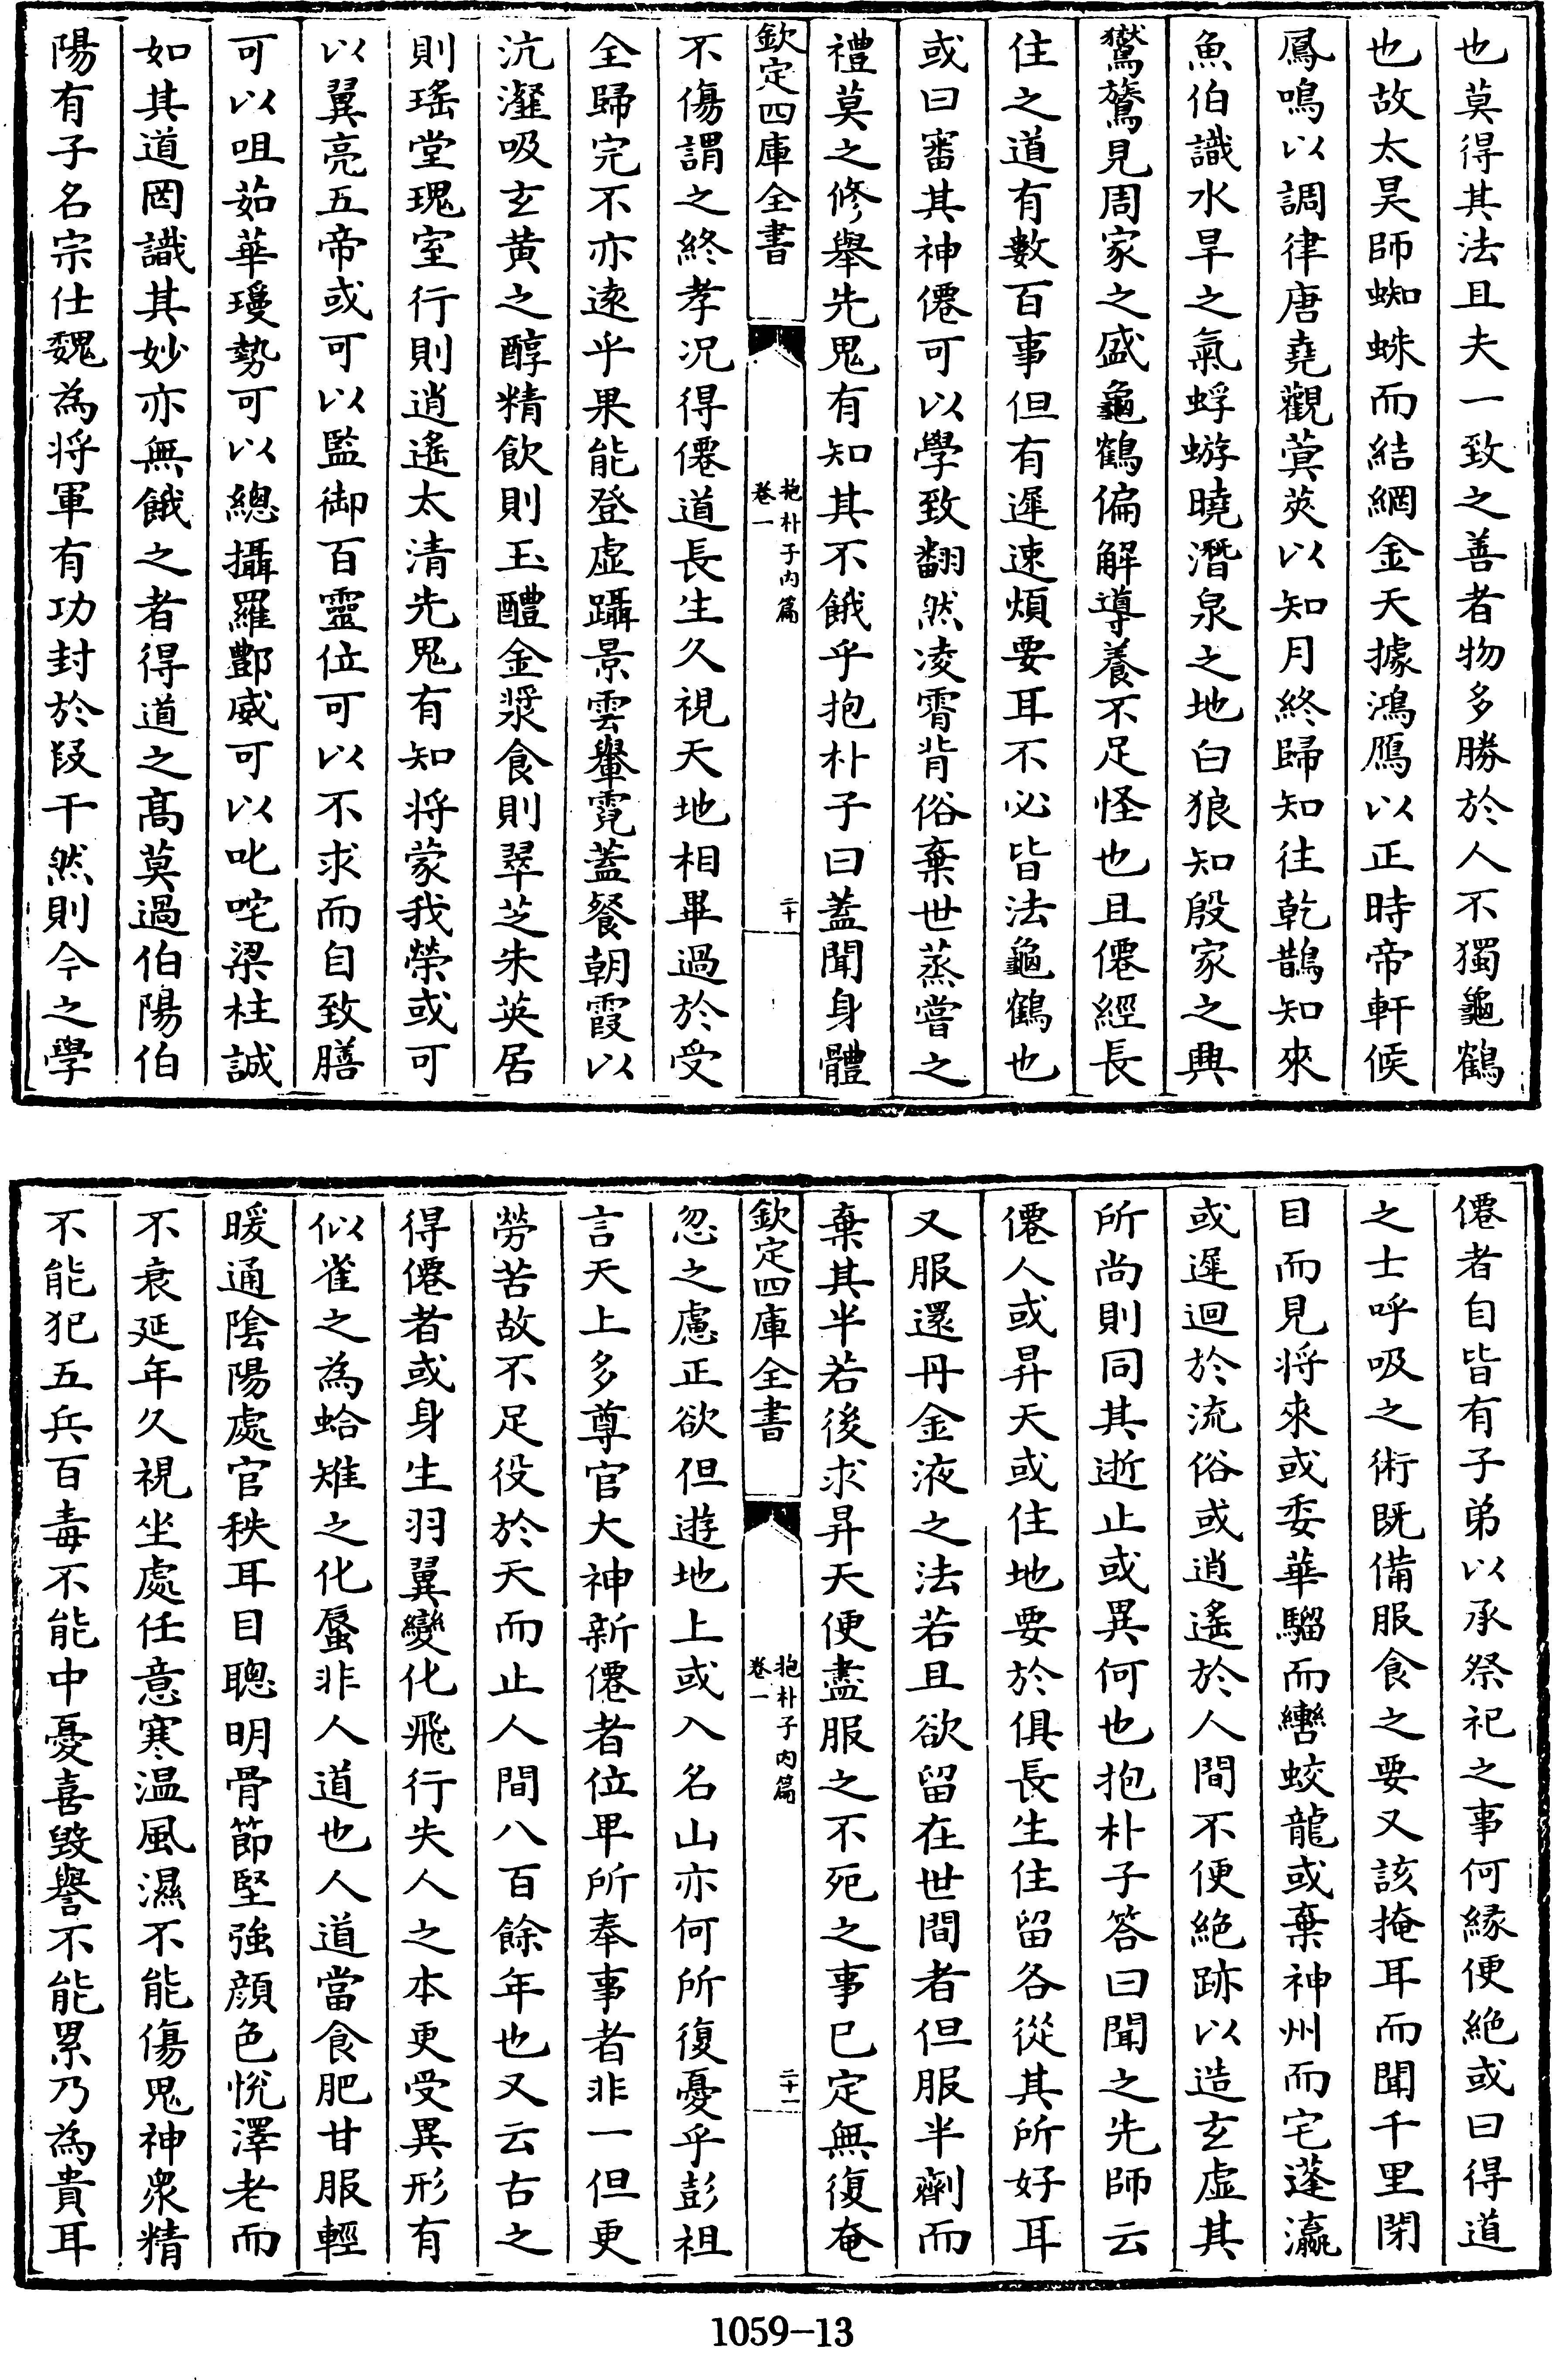 也莫得其法且夫一致之善者物多勝於人不獨龜鶴
也故太昊師蜘蛛而結網金天據鴻鴈以正時帝軒候
鳳鳴以調律唐堯觀蓂莢以知月終歸知往乾鵲知來
魚伯識水旱之氣蜉蝣曉潛泉之地白狼知殷家之興
鸑鷟見周家之盛龜鶴偏解導養不足怪也且僊經長
住之道有數百事但有遲速煩要耳不必皆法龜鶴也
或曰審其神僊可以學致翻然凌霄背俗棄世蒸嘗之
禮莫之修舉先鬼有知其不餓乎抱朴子曰蓋聞身體
欽定四庫全書
抱朴子內篇
卷一
二十
不傷謂之終孝况得僊道長生久視天地相畢過於受
全歸完不亦逺乎果能登虛躡景雲轝霓蓋餐朝霞以
沆瀣吸玄黄之醇精飲則玉醴金漿食則翠芝朱英居
則瑤堂瑰室行則逍遙太清先鬼有知将蒙我榮或可
以翼亮五帝或可以監御百靈位可以不求而自致膳
可以咀茹華璦勢可以總攝羅酆威可以叱咤梁柱誠
如其道罔識其妙亦無餓之者得道之髙莫過伯陽伯
陽有子名宗仕魏為将軍有功封於段干然則今之學
僊者自皆有子弟以承祭祀之事何緣便絶或曰得道
之士呼吸之術既備服食之要又該掩耳而聞千里閉
目而見将來或委華駵而轡蛟龍或棄神州而宅蓬瀛
或遲迴於流俗或逍遙於人間不便絶跡以造玄虛其
所尚則同其逝止或異何也抱朴子答曰聞之先師云
僊人或昇天或住地要於俱長生住留各從其所好耳
又服還丹金液之法若且欲留在世間者但服半劑而
棄其半若後求昇天便盡服之不死之事已定無復奄
欽定四庫全書
抱朴子內篇
卷一
二十一
忽之慮正欲但遊地上或入名山亦何所復憂乎彭祖
言天上多尊官大神新僊者位卑所奉事者非一但更
勞苦故不足役於天而止人間八百餘年也又云古之
得僊者或身生羽翼變化飛行失人之本更受異形有
似雀之為蛤雉之化蜃非人道也人道當食肥甘服輕
暖通陰陽處官秩耳目聰明骨節堅強顔色悅澤老而
不衰延年久視坐處任意寒溫風濕不能傷鬼神衆精
不能犯五兵百毒不能中憂喜毀譽不能累乃為貴耳
1059-13